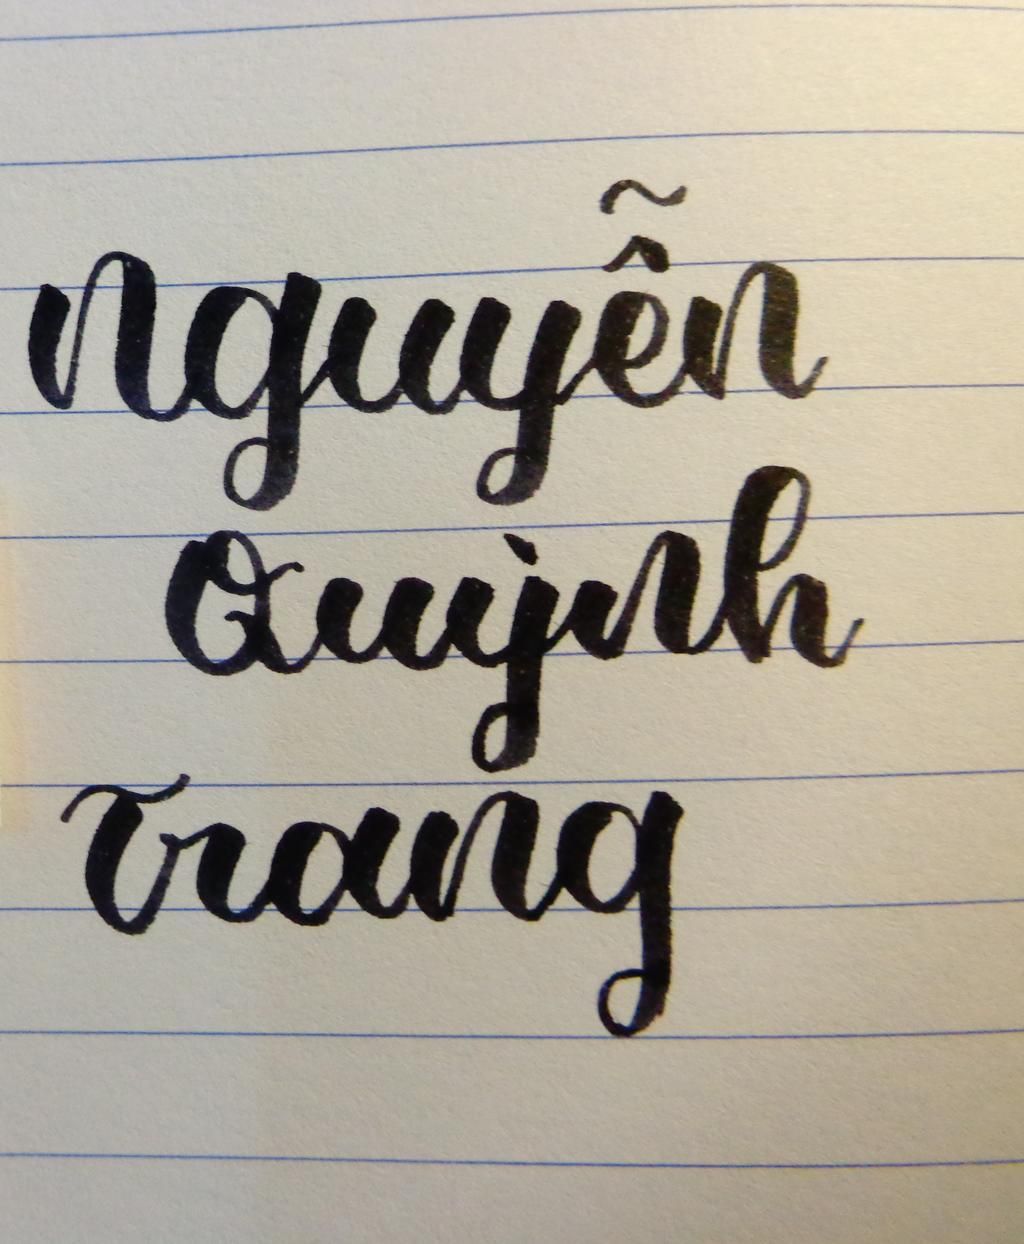 Nguyễn
Quỳnh
Trang